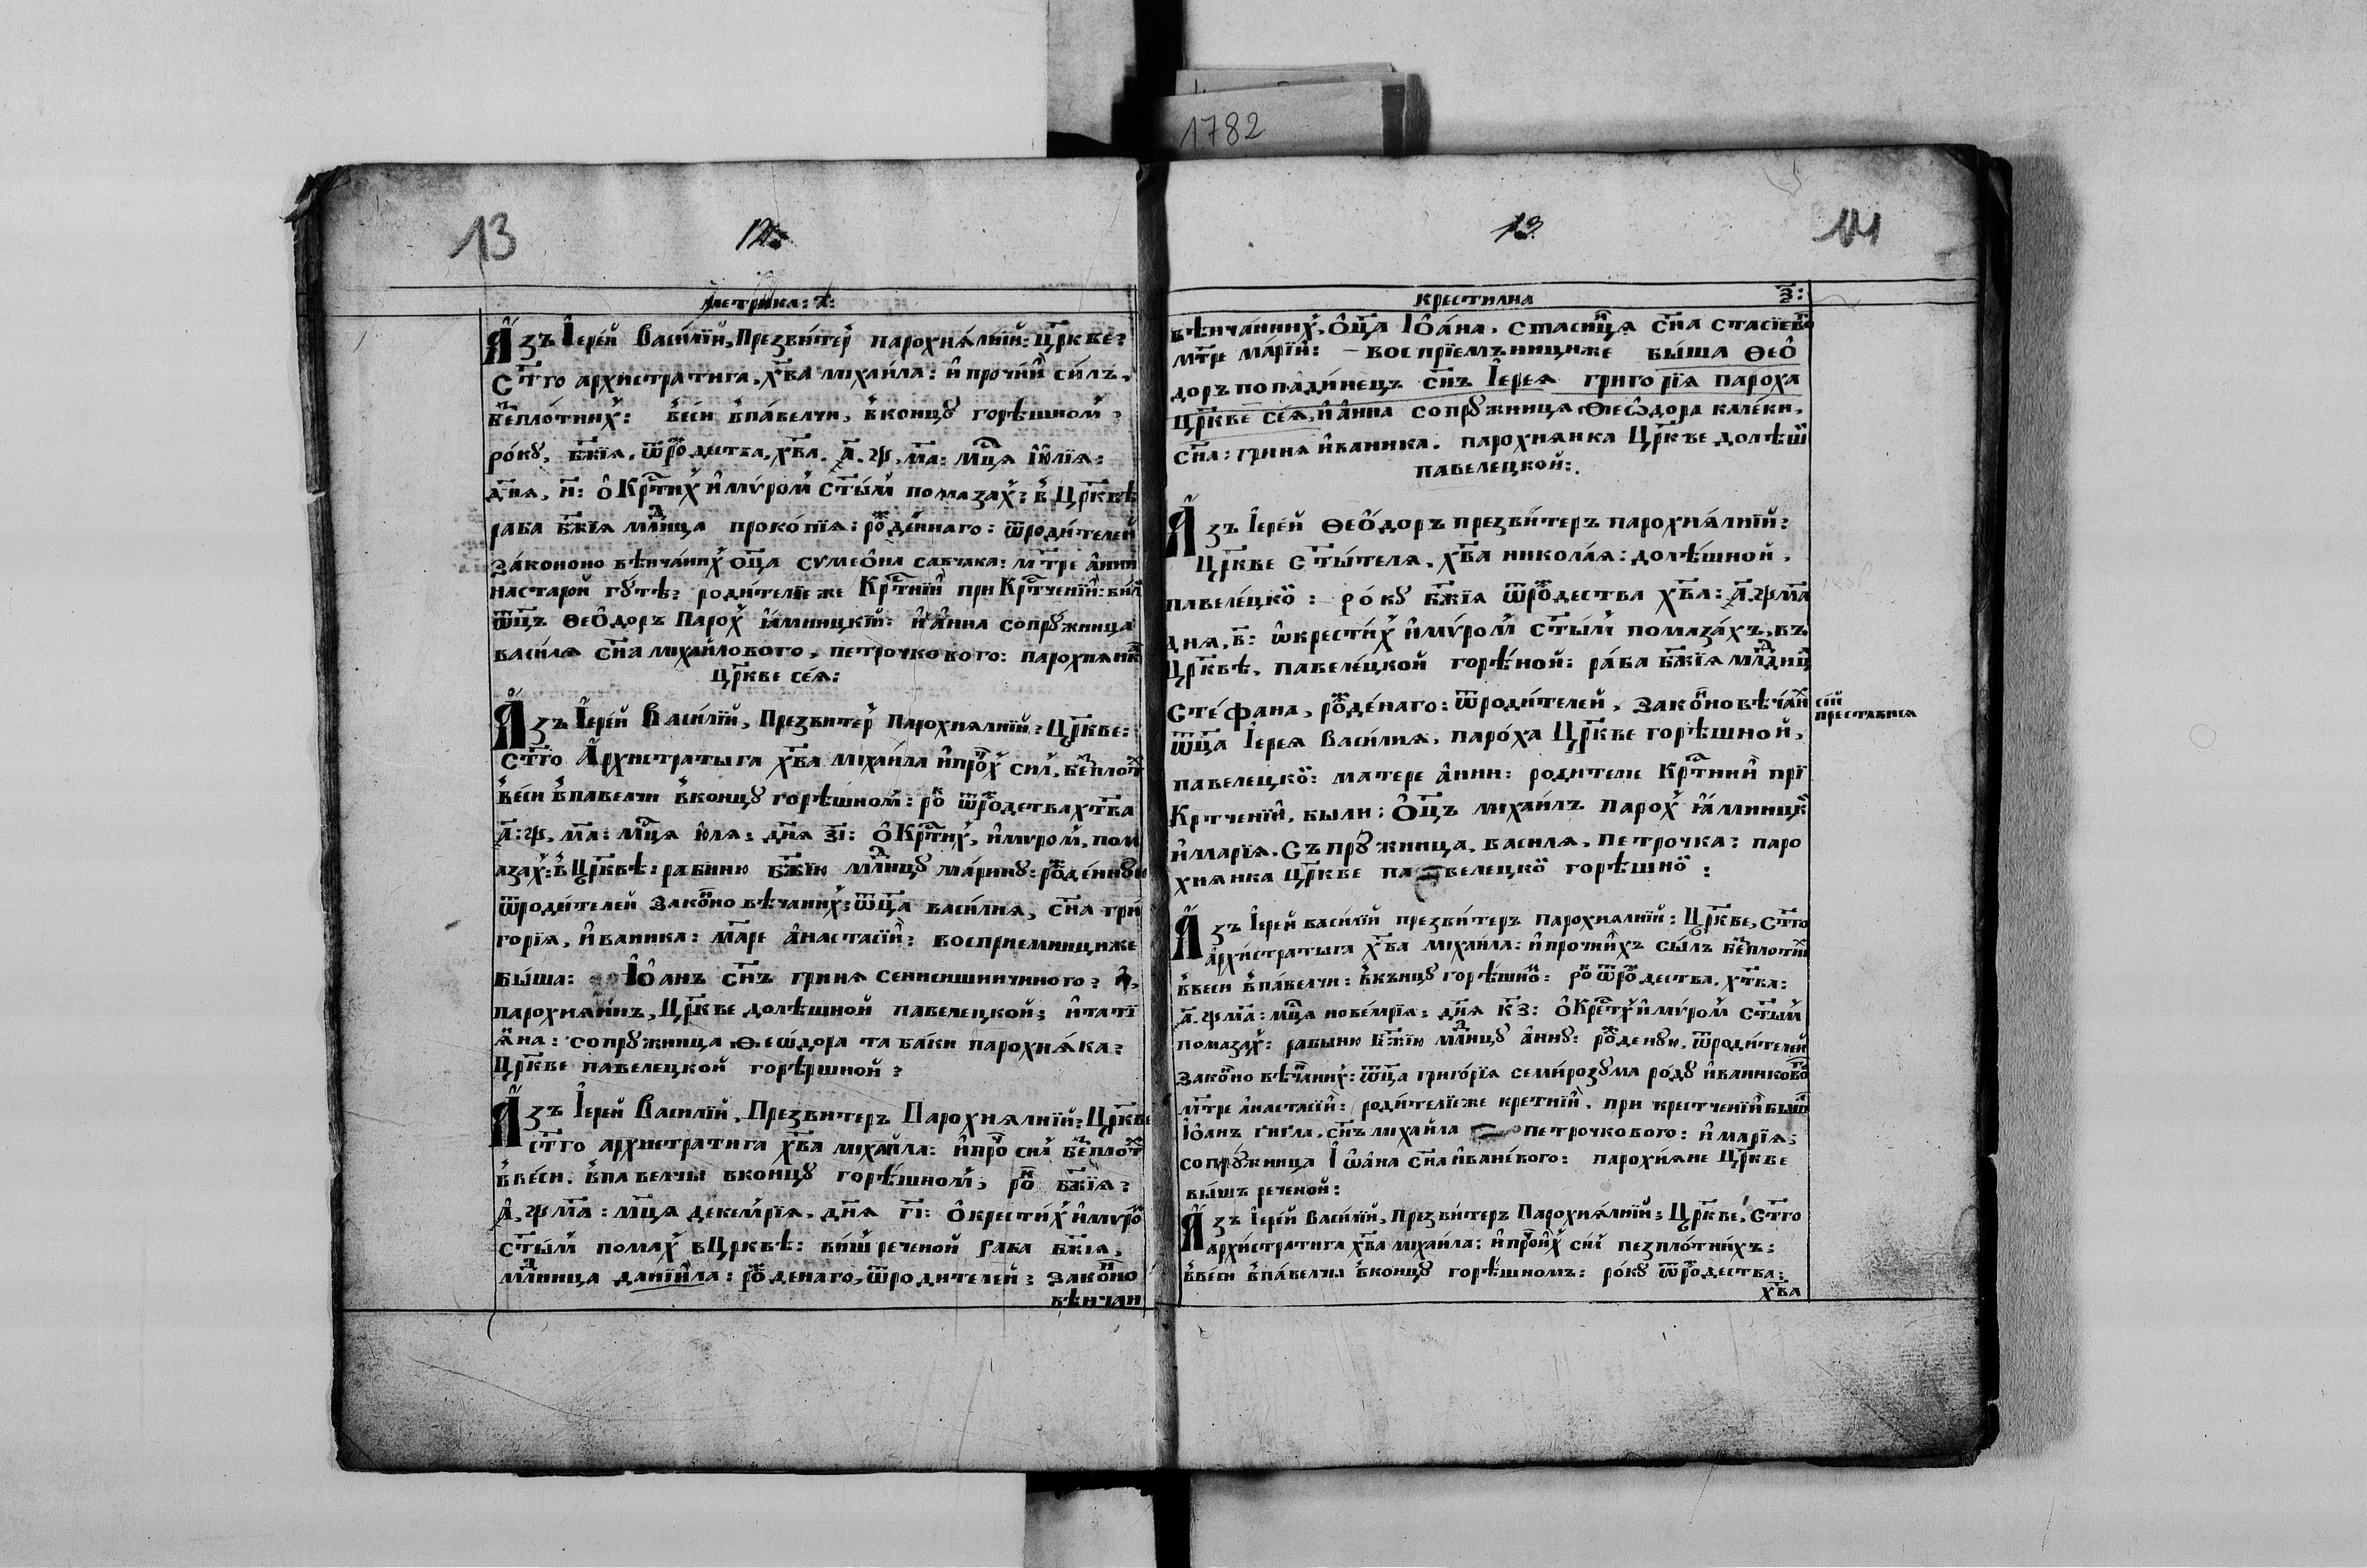 1782
13
12
Метрика: а҃:
Азъ Іерей Василій, Презвитер парохиялній: Црк҃ве:
Ст҃го архистратига, хв҃а міхаила: и прочіи силъ,
бе҃плотних:ввеси впавелчи, вконцу горѣшном:
року, бж҃ія, ѿродества, хв҃а. а҃.ѱ.ма҃: мц҃а іюлія:
дня, и҃: окрт҃их имѵром ст҃ым помазах: в Црк҃вѣ
раба бж҃ія млд҃нца прокопія: рожденнаго: ѿродителей
законно вѣнчаних оц҃а сумеона савчака: мт҃ре анни
настарой гутѣ: родителіе же Крт҃ніи при Крт҃ченіи: бил
ѿц҃ъ Феодоръ Парох ямницкій: и анна сопружница
василя сн҃а міхайлового, петрочкового: парохиянк
црк҃ве сея:
Азъ Іерей Василій, Презвитер Парохиялній: Црк҃ве:
ст҃го Архистратыга хв҃а міхаила ипроч сил, бе҃плот
ввеси впавелчи вконцу горѣшном: ро ѿродества хт҃ва
а҃:ѱ, ма҃: мц҃а юля: дн҃я зі҃: окрт҃их, имѵром, пом
азах: в Црк҃вѣ: рабиню бж҃ію млд҃нцу марину: рожденную
ѿродителей законно вѣчаних: ѿц҃а василия, сн҃а гри
горія, иваника: мт҃аре анастасіи: восприемнициже
быша: Іоанъ сн҃ъ гриня сенисишинчиного:
парохиянинъ, Црк҃ве долѣшной павелецкой: итаті
яна: сопружница Феѡдора табаки парохияка:
Црк҃ве павелецкой горѣршной:
Азъ Іерей Василій, Презвитеръ Парохиялній: Црк҃ве
ст҃го архистратига хв҃а міхаила: ипро сил бе҃плот
ввеси, впавелчы вконцу горѣшном; ро бж҃ія:
а҃,ѱма҃: мц҃а декемрія, дн҃я гі҃: окрестих имѵро
ст҃ым помах вЦрквѣ: вишреченой раба бж҃ія,
млд҃ница даніила: рожденаго, ѿродителей: законно
вѣнчан
13
14
крестилна
з҃:
вѣнчанних, оц҃а Іоана, стасинця сн҃а стасіевого
мт҃ре маріи: воспріемънициже быша Фео
доръ попадинецъ сн҃ъ Іерея григорія пароха
Црк҃ве сея, и анна сопружница Феѡдора калеки,
сн҃а: гриня иваника. парохиянка Црк҃ве долѣш
павелецкой:.
Азъ Іерей Феодоръ презвитеръ парохиялній:
Црк҃ве ст҃ытеля, хв҃а николая: долѣшной,
павелецко: року бж҃ія ѿродества хв҃а: а҃.ѱма҃
дня, в҃: ѡкрестих имѵром ст҃ым помазахъ, въ
Црк҃вѣ, павелецкой горѣной: раба бж҃ія млд҃ниц
Стефана, рожденаго: ѿродителей, законновѣчан
сій
преставися
ѿц҃а Іерея Василия, пароха Црк҃ве горѣшной,
павелецко: матере анни: родителіе Крт҃ниі прі
Кртченіи, были: Оц҃ъ міхаилъ парох ямницк
имарія. Съпружница, василя, петрочка: паро
хиянка Црк҃ве павелецко горѣшно:
Азъ Іерей василій презвитеръ парохиялній: Црк҃ве, ст҃го
архистратыга хв҃а міхаила: ипрочиихъ сылъ бе҃плотни
ввеси впавелчи: вкънцу горѣшно: ро ѿродества, хт҃ва:
а҃.ѱма҃: мц҃а новемрія: дн҃я кз҃: окрт҃их имѵром ст҃ым
помазах: рабыню бж҃ію млд҃ницу анну: рожденую, ѿродителей
законно вѣчаних: ѿц҃а григорія семирозума роду иваникового
мт҃ре анастасіи: родителіеже кретніи, при крестченіи быш
Іоанъ гигла, сн҃ъ михаила петрочкового: и марія:
сопружница Іѡана сн҃а иваневого: парохияне Црк҃ве
вышъ реченой:
Азъ Іерей Василій, Презвитеръ Парохиялній: Црк҃ве, ст҃го
архистратига хв҃а міхаила: ипрочих сил пезплотнихъ:
ввеси впавелчы вконцу горѣшномъ: року ѿродества:
хв҃а